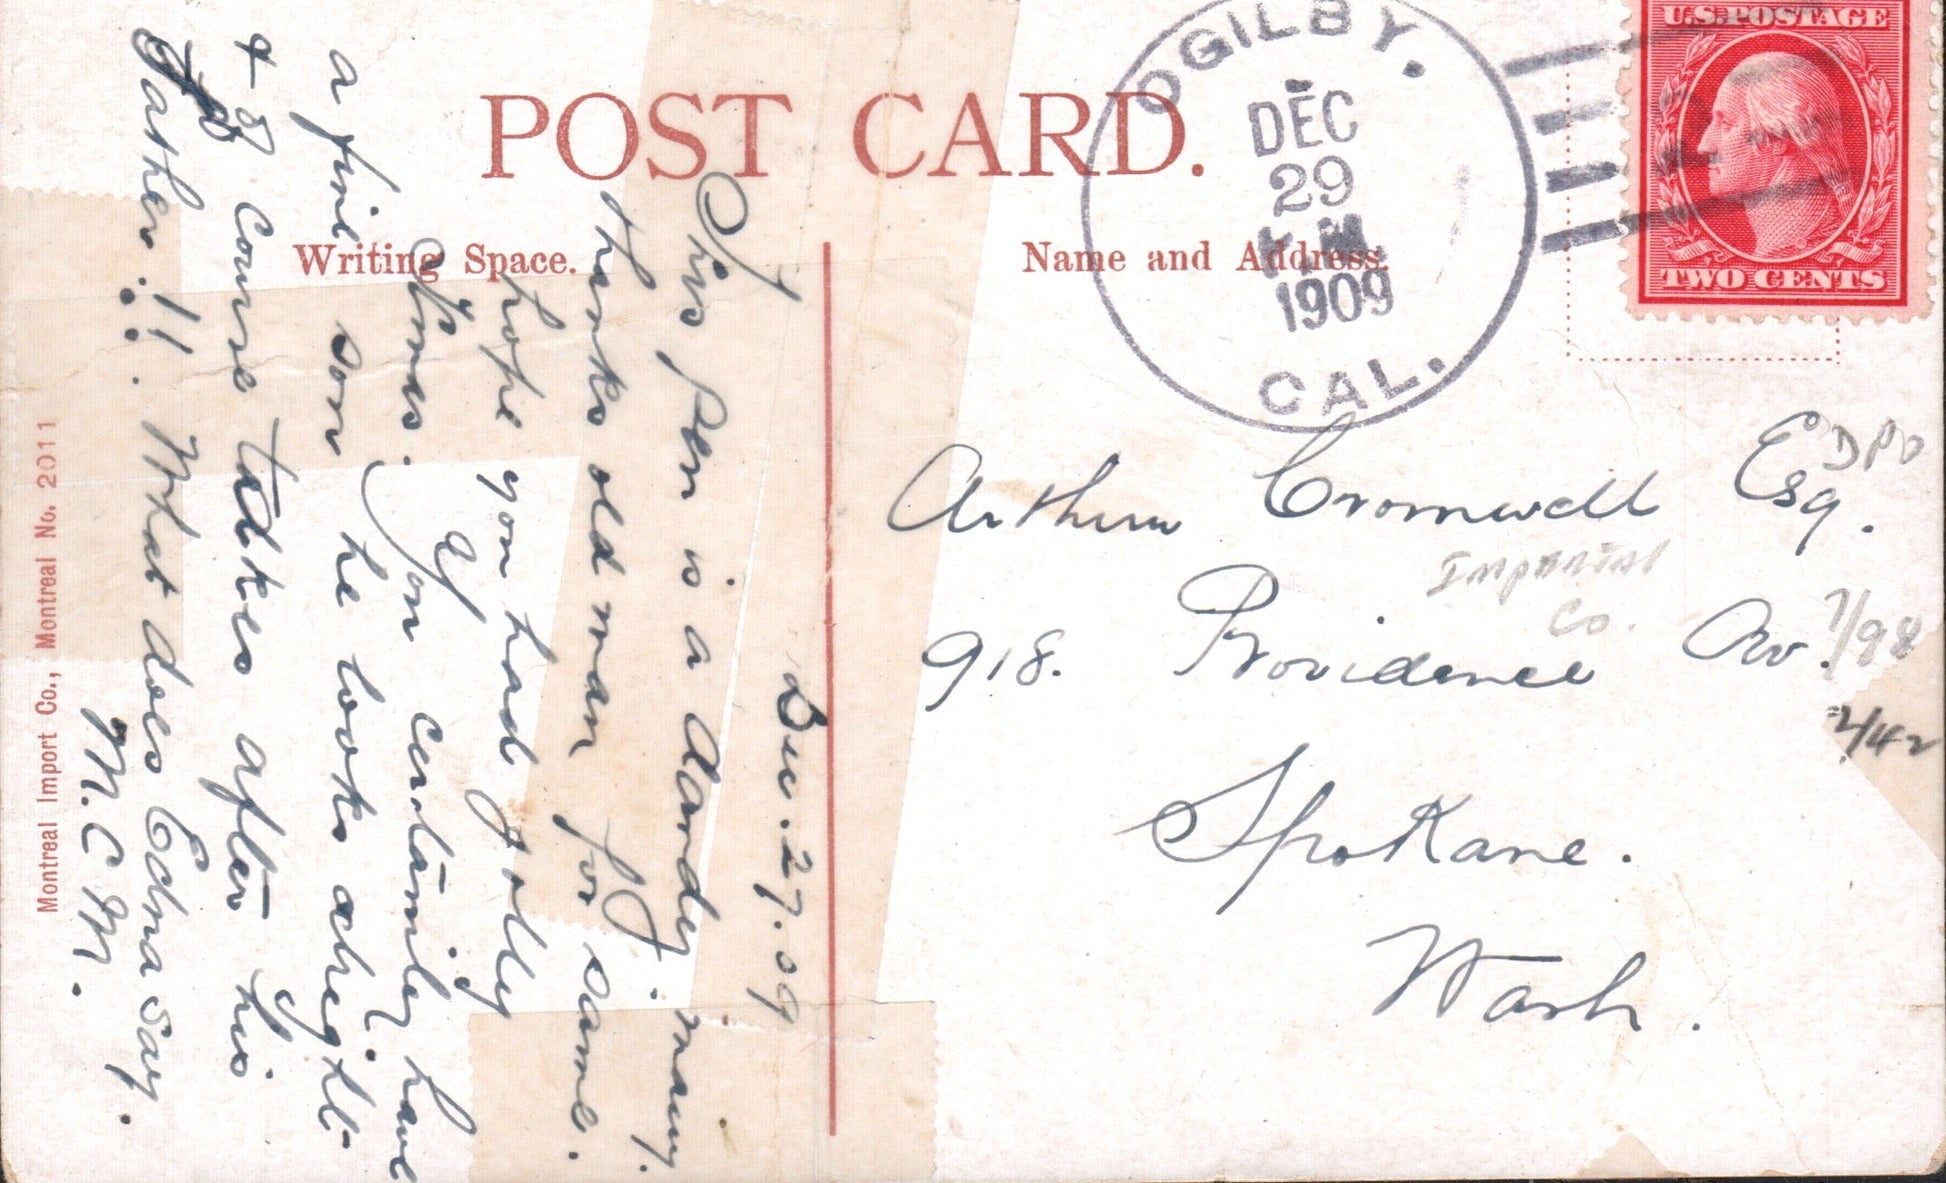 POST CARD.
Writing Space.
Name and Address.
OGILBY.
DEC
29
1909
CAL.
U.S. POSTAGE
TWO CENTS
Dec. 27. 09
This pen is a dandy, many.
thanks old man for same.
I hope you had a jolly
Xmas. You certainley have
a fine son he looks alright
& I course takes after his
Father. !! What does Edna say.
M. C. M.
Arthur Cromwell Esq.
918. Providence Av.
Spokane.
Wash.
DPO
Imperial
Co.
7/98
2/42
Montreal Import Co., Montreal No. 2011